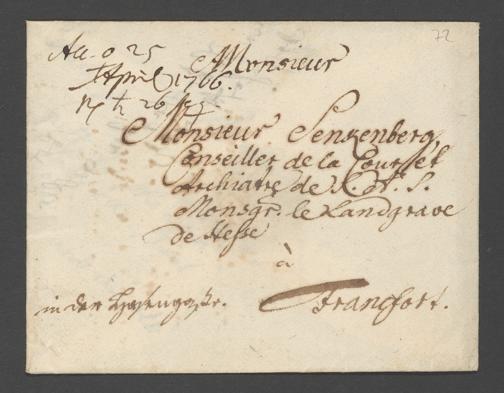 72
Acc. 25
Monsieur
April 1766.
26
Monsieur Senkenberg
Conseiller de la Cour et
Archiatre de S. A. S.
Monsgr. le Landgrave
de Hesse
à
in der Hasengaße.
Francfort.